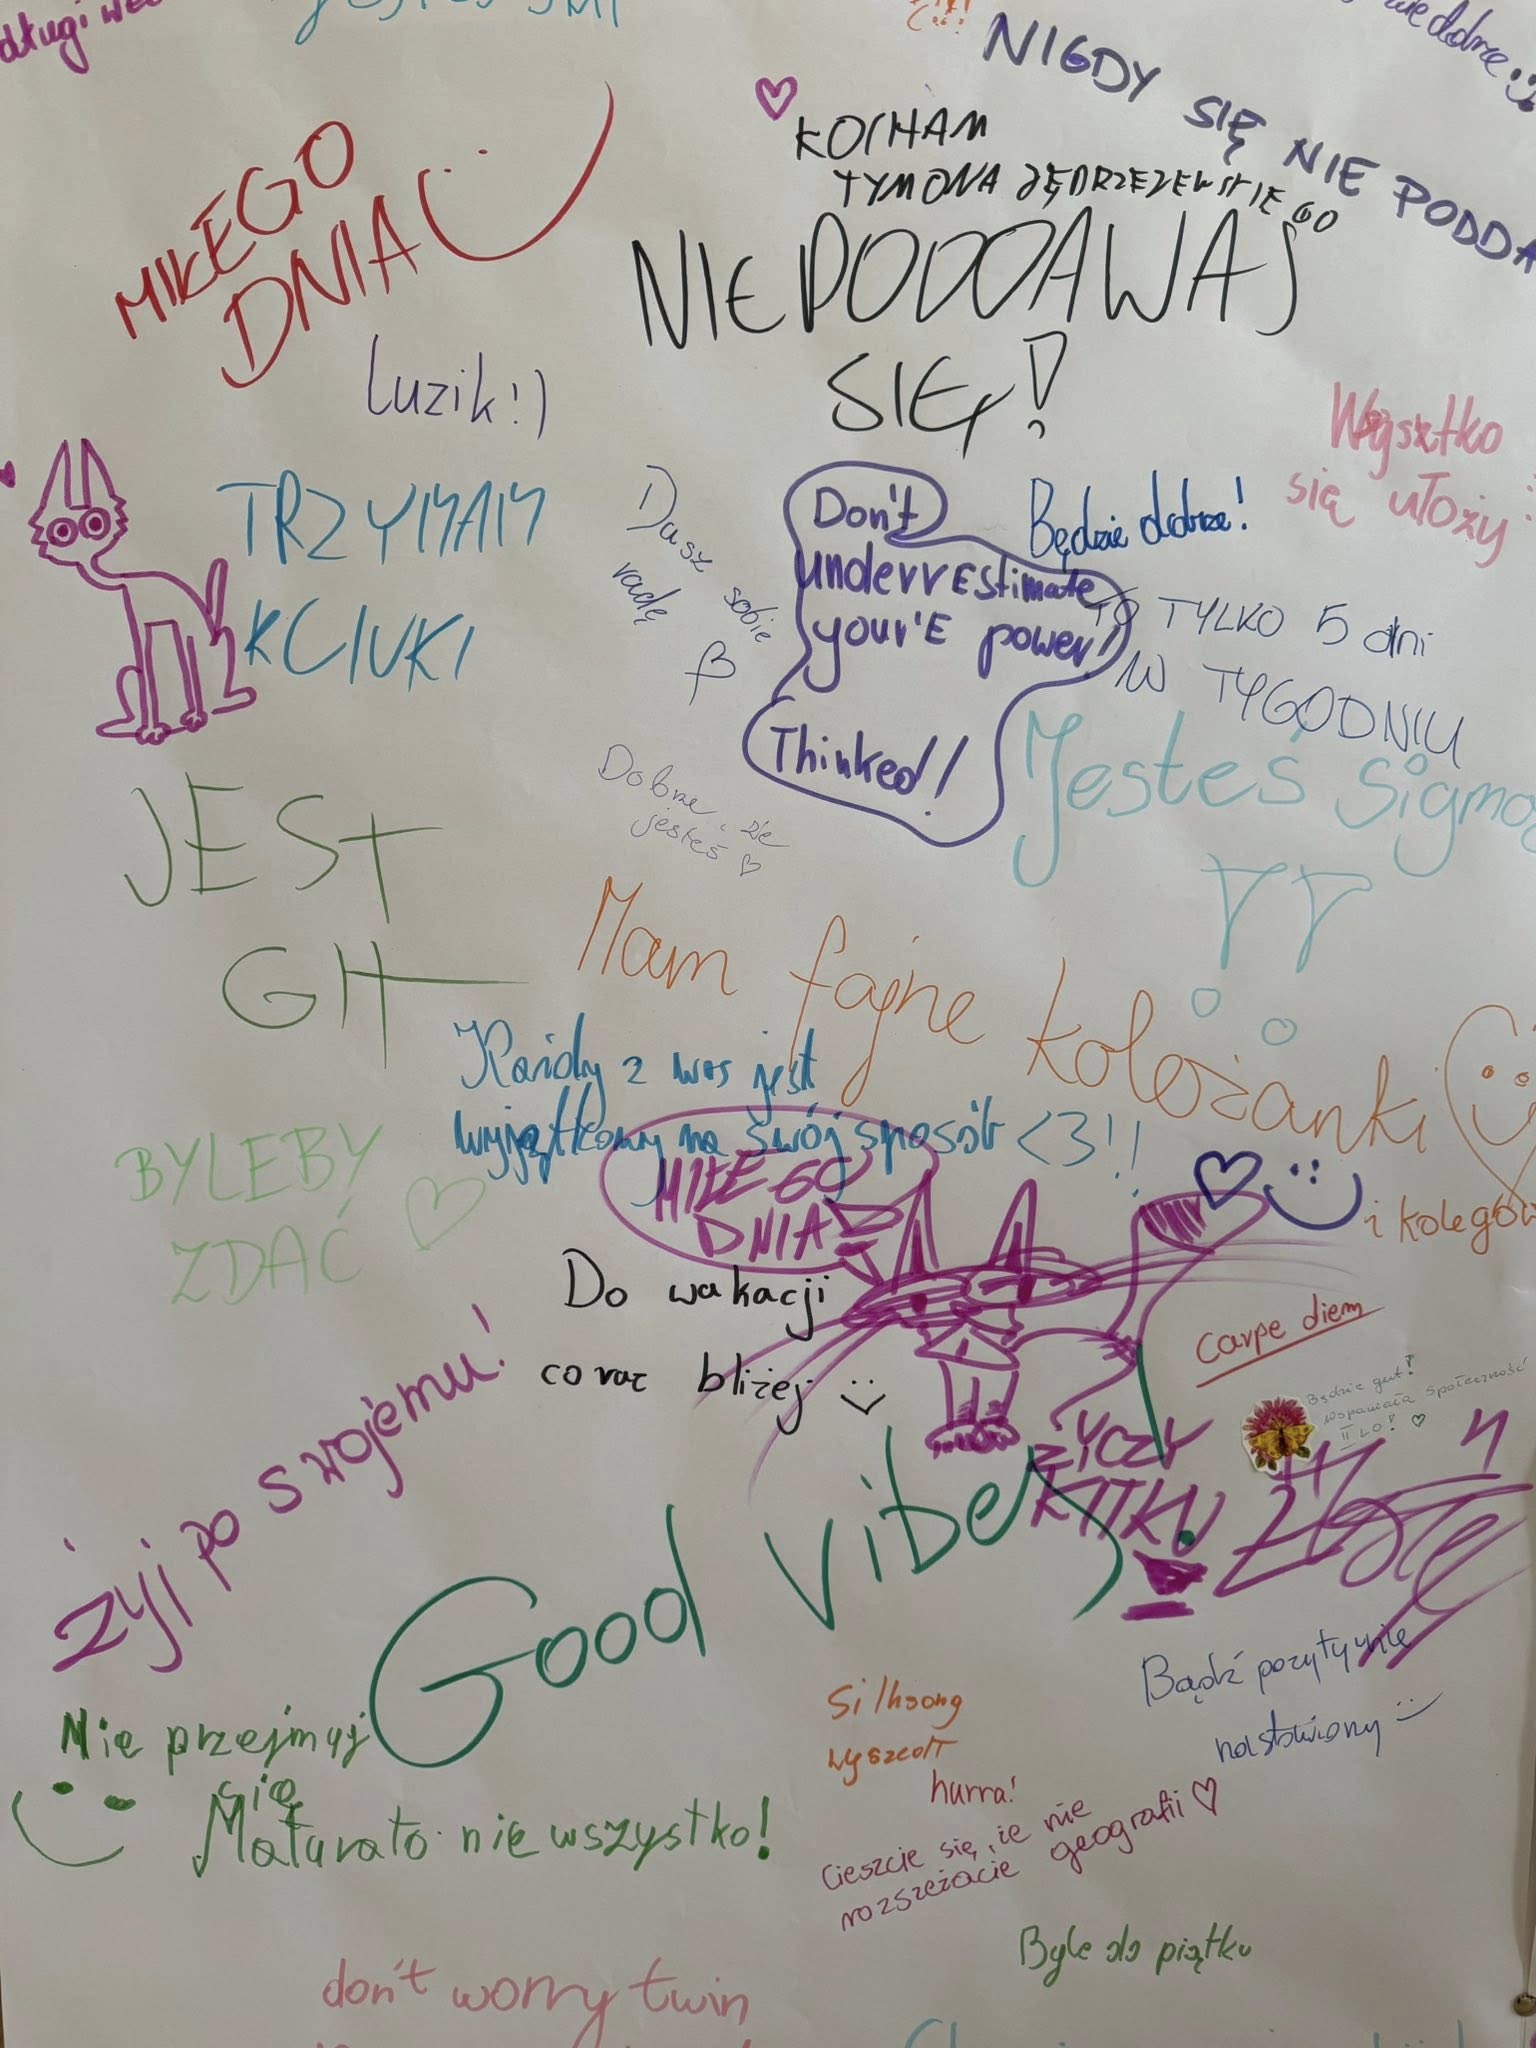 długi
jesteś
NIGDY SIĘ NIE PODDA
dobrze
MIŁEGO
DNIA
KOCHAM
TYMONA JĘDRZEJEWSKIEGO
NIE PODDAWAJ
SIĘ!
luzik!)
Wszystko
się ułoży
TRZYMAM
KCIUKI
Dasz sobie
radę
Don't
underrrEstimate
your'E power!
Thinked!!
Będzie dobrze!
TO TYLKO 5 dni
W TYGODNIU
Jesteś sigmą
Dobrze, że
jesteś
JEST
GIT
Mam fajne koleżanki
i kolegów
Każdy z was jest
wyjątkowy na swój sposób <3!!
BYLEBY
ZDAĆ
MIŁEGO
DNIA
Do wakacji
coraz bliżej
carpe diem
Będzie gut!
wspaniała społeczność
II LO!
żyj po swojemu!
ŻYCZY
KITKU
Good vibes!
Bądź pozytywnie
nastawiony
Silksong
wyszedł
hurra!
Nie przejmuj
się
Matura to nie wszystko!
Cieszcie się, że nie
rozszeżacie geografii
Byle do piątku
don't worry twin